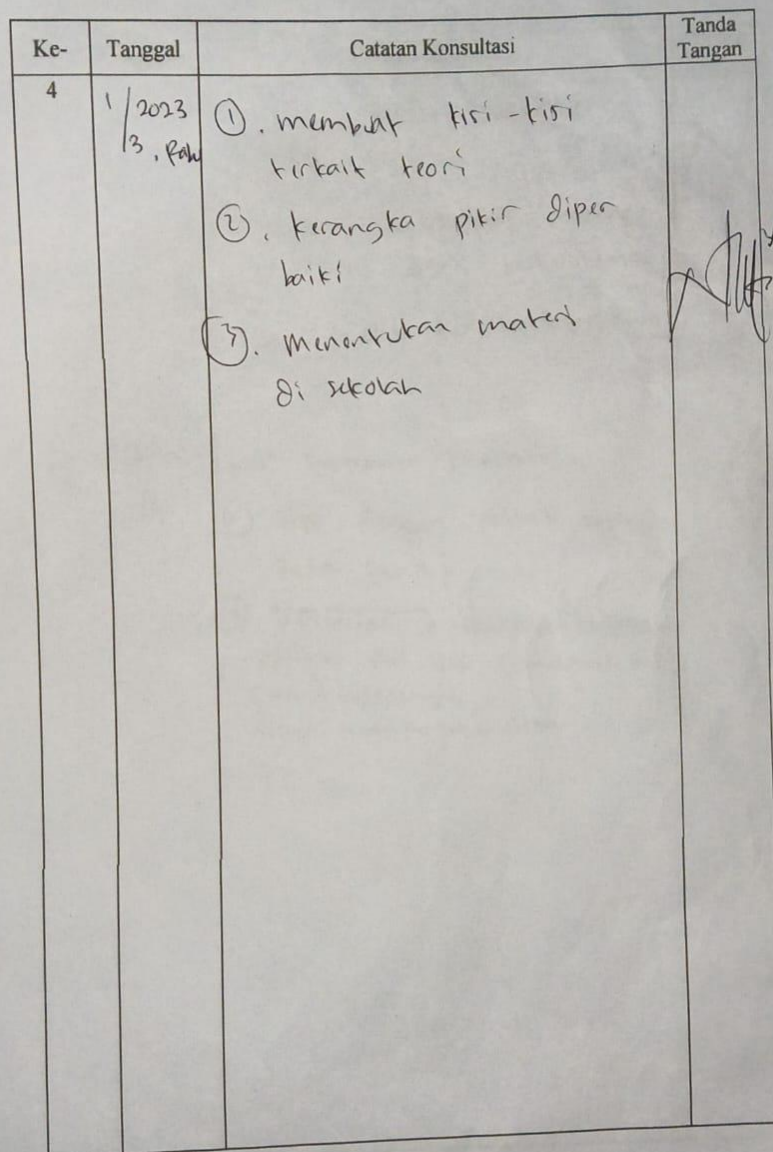 Ke- Tanggal Catatan Konsultasi Tanda Tangan
4
1/2023
/3, Rabu
①. membuat kisi-kisi
terkait teori
②. kerangka pikir diper
baiki
③. menentukan materi
di sekolah